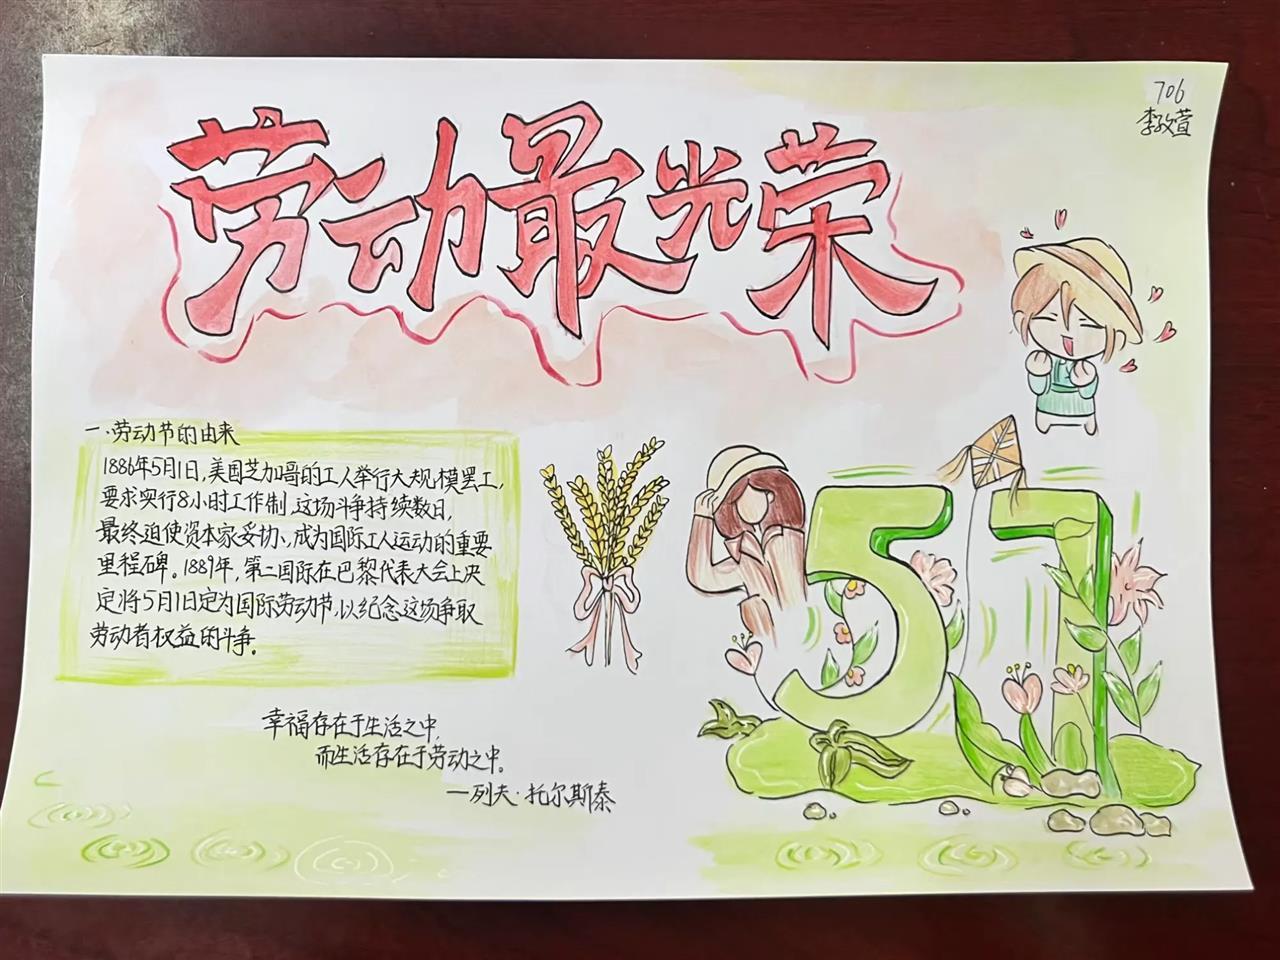 706
李玟萱
劳动最光荣
一.劳动节的由来
1886年5月1日,美国芝加哥的工人举行大规模罢工,
要求实行8小时工作制,这场斗争持续数日,
最终迫使资本家妥协,成为国际工人运动的重要
里程碑。1889年,第二国际在巴黎代表大会上决
定将5月1日定为国际劳动节,以纪念这场争取
劳动者权益的斗争。
幸福存在于生活之中,
而生活存在于劳动之中。
一列夫·托尔斯泰
51